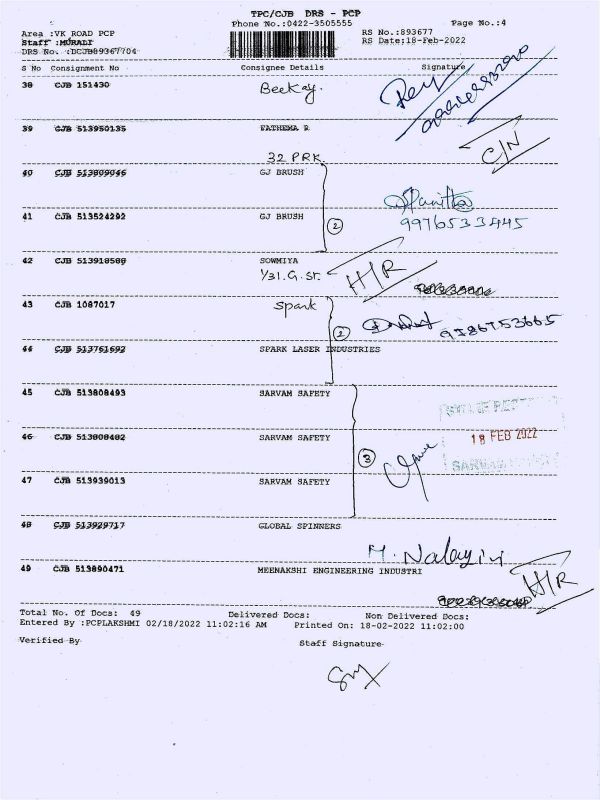 TPC/CJB DRS - PCP
Phone No.:0422-3505555
Page No.:4
Area :VK ROAD PCP
RS No.:893677
Staff :MURALI
RS Date:18-Feb-2022
DRS No. :DCJB89367704
S No Consignment No Consignee Details Signature
38 CJB 151430 Beekay.
39 CJB 513950135 FATHEMA R C/N
32 PRK.
40 CJB 513809046 GJ BRUSH
41 CJB 513524292 GJ BRUSH 2 9976533445
42 CJB 513918580 SOWMIYA
1/31. G. St. H/R
43 CJB 1087017 Spark
2 9786753665
44 CJB 513761692 SPARK LASER INDUSTRIES
45 CJB 513808493 SARVAM SAFETY
46 CJB 513808482 SARVAM SAFETY 18 FEB 2022
3
47 CJB 513939013 SARVAM SAFETY
48 CJB 513929717 GLOBAL SPINNERS
49 CJB 513890471 MEENAKSHI ENGINEERING INDUSTRI H/R
Total No. Of Docs: 49 Delivered Docs: Non Delivered Docs:
Entered By :PCPLAKSHMI 02/18/2022 11:02:16 AM Printed On: 18-02-2022 11:02:00
Verified By Staff Signature